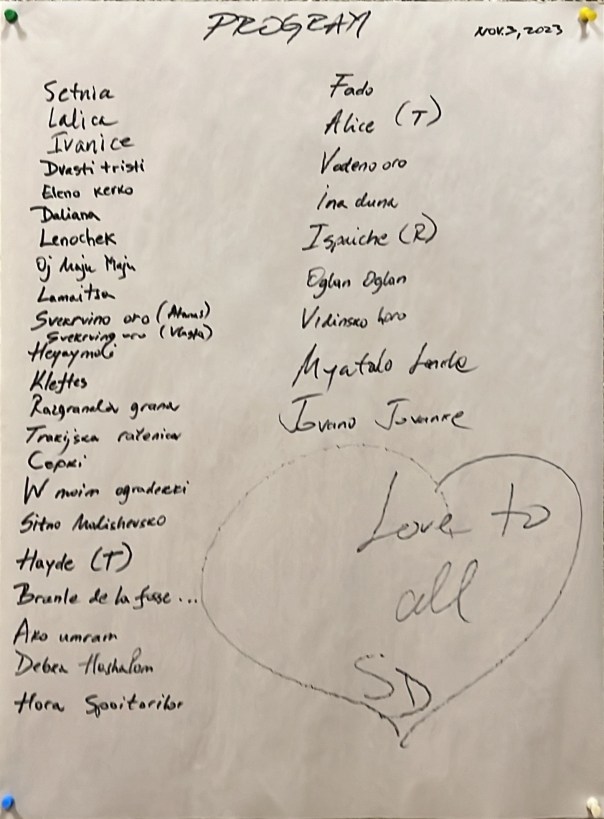 PROGRAM
Nov. 3, 2023
Setnia
Lalica
Ivanice
Dvasti tristi
Eleno kerko
Daliana
Lenochek
Oj Maju Maju
Lamaitsa
Svekrvino oro (Atanas)
Svekrvino oro (Vlasta)
Heyaymoli
Kleftes
Razgranala grana
Trakijska račenica
Copki
W moim ogrodecki
Sitno Malishevsko
Hayde (T)
Branle de la fosse ...
Ako umram
Debka Hashalom
Hora Spoitorilor
Fado
Alice (T)
Vodeno oro
Ina duna
Ispaiche (R)
Oglan Oglan
Vidinsko horo
Myatalo Lenče
Jovano Jovanke
Love to
all
SD